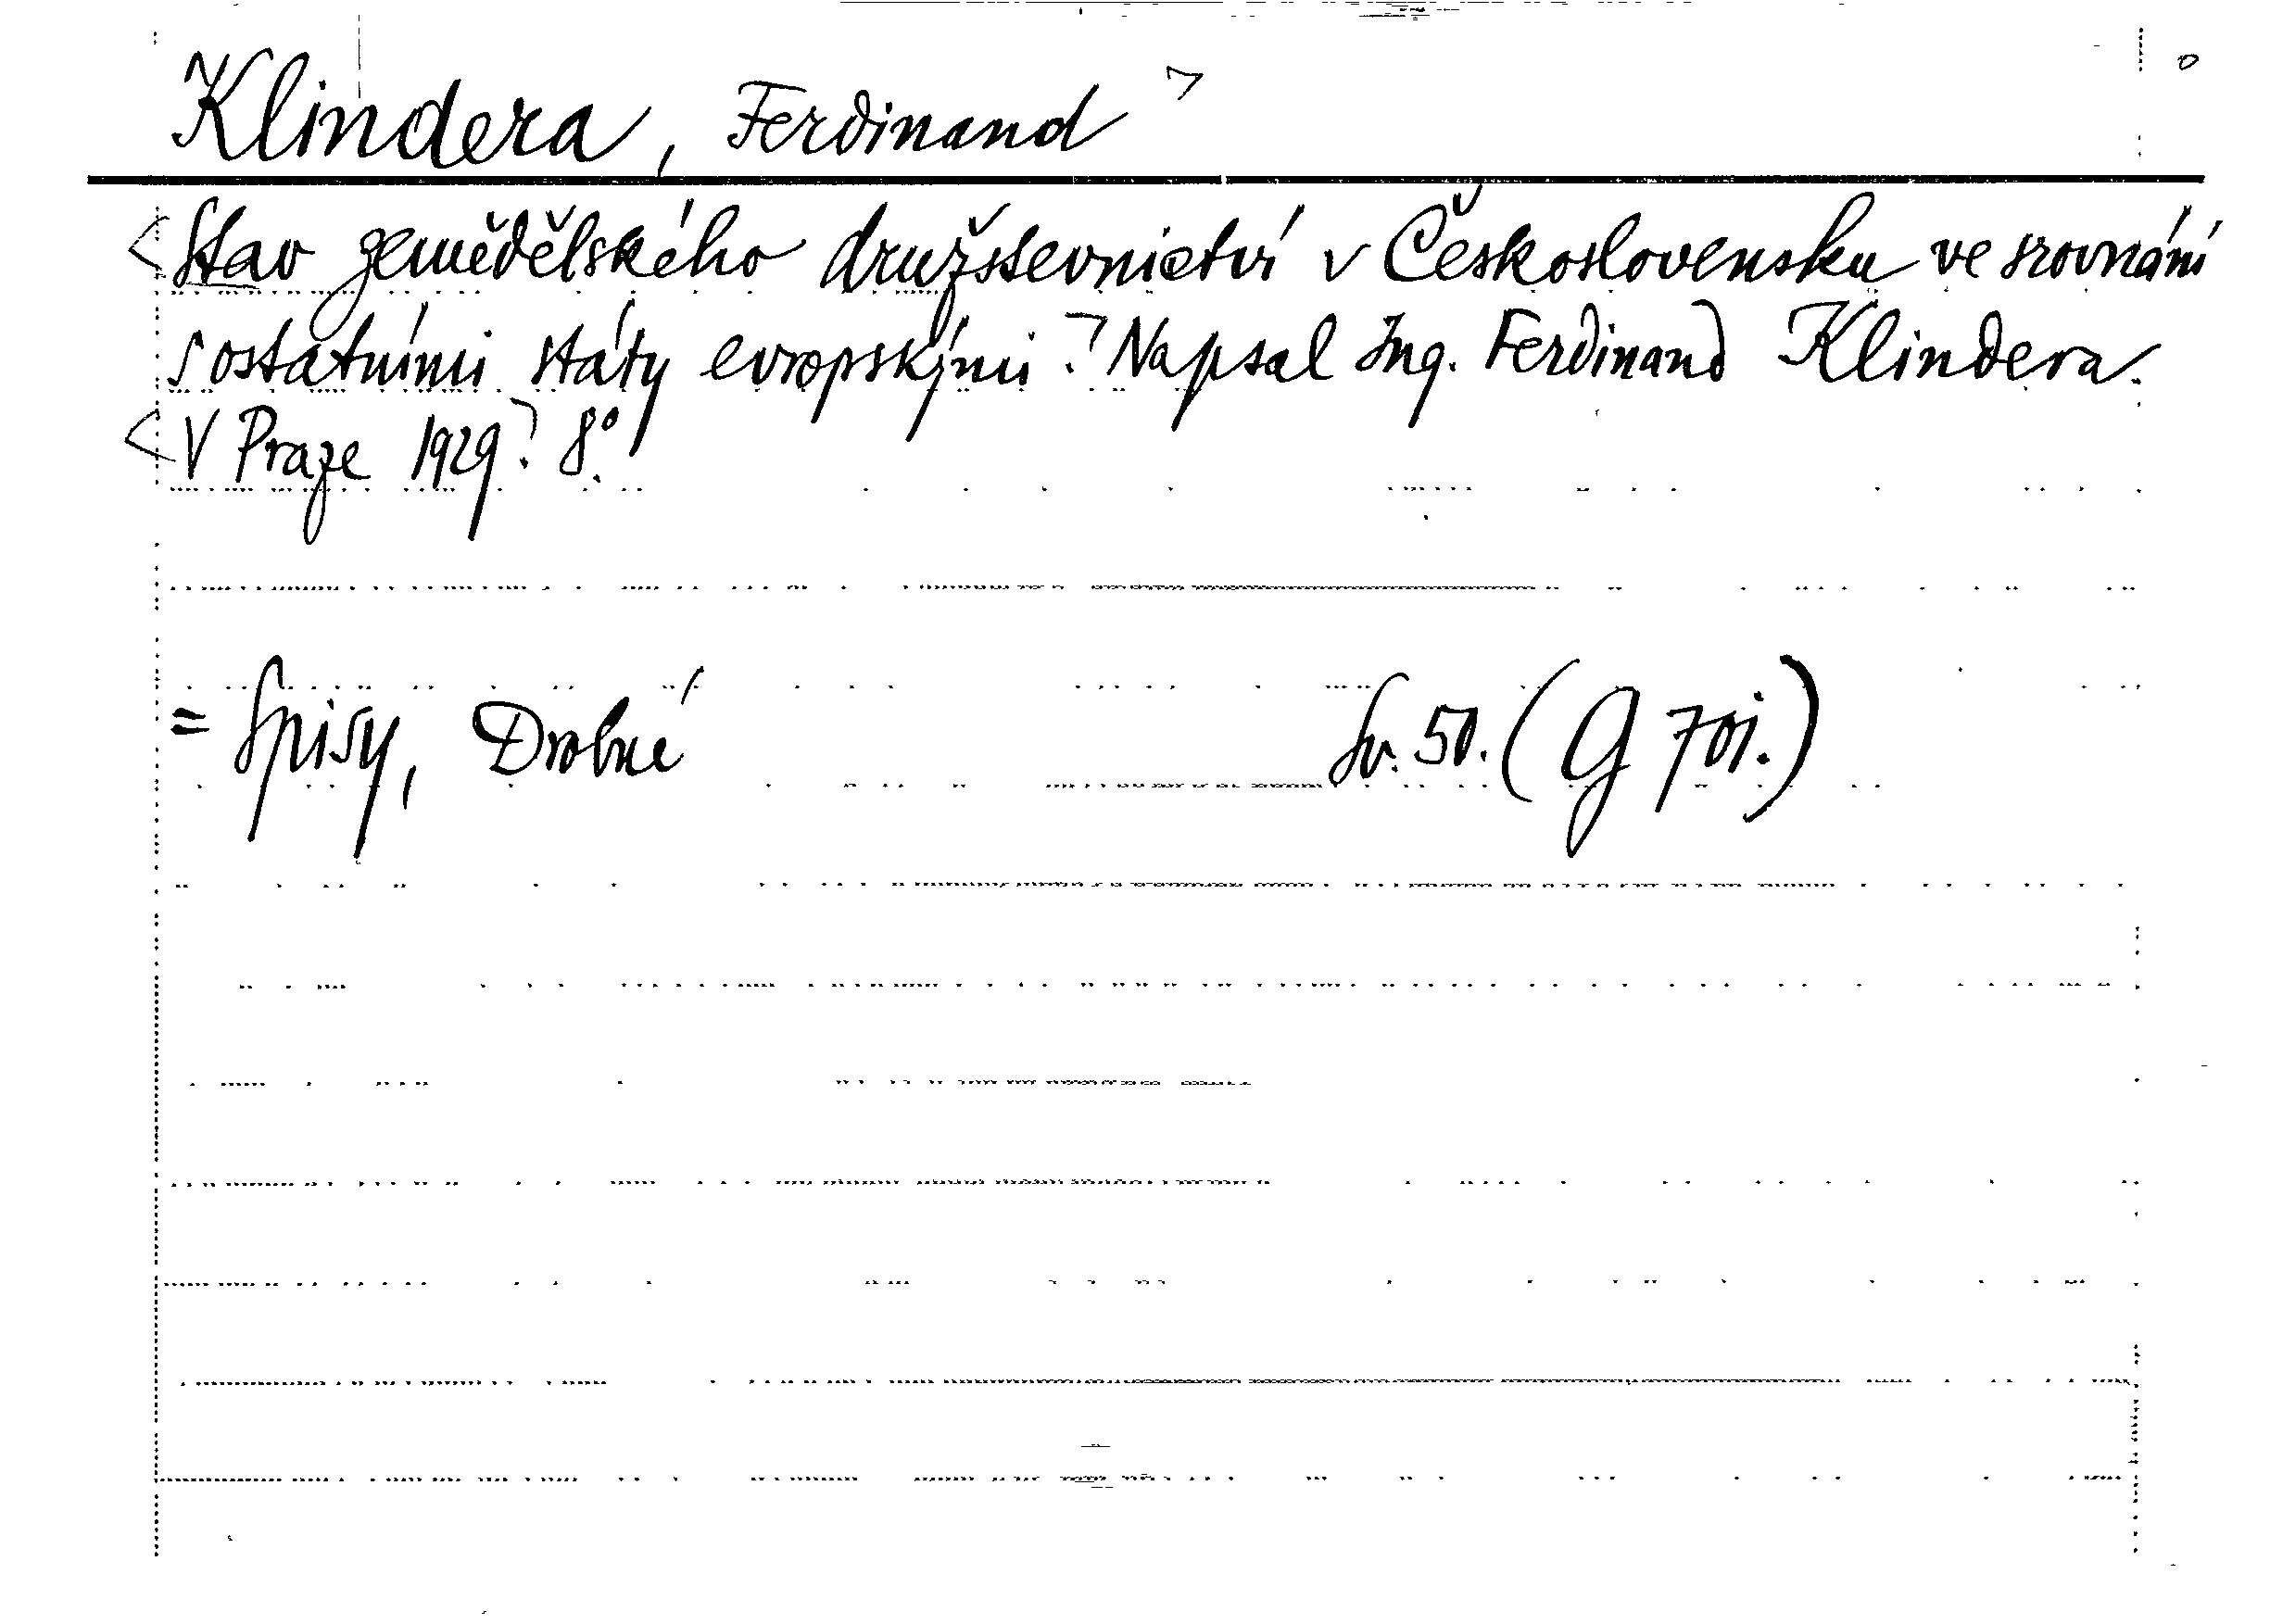 Klindera, Ferdinand
Stav zemědělského družstevnictví v Československu ve srovnání
s ostatními státy evropskými. Napsal Ing. Ferdinand Klindera.
V Praze 1929. 8°.
= Spisy, Drobné Sv. 50. (G 701.)